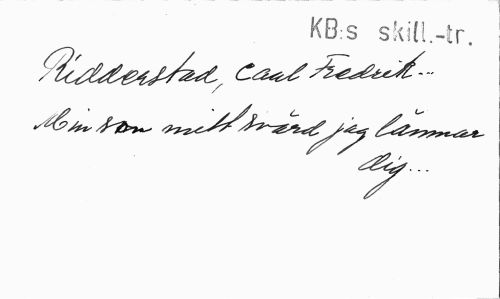 KB:s skill.-tr.
Ridderstad, Carl Fredrik...
Min son mitt svärd jag lämnar
dig...